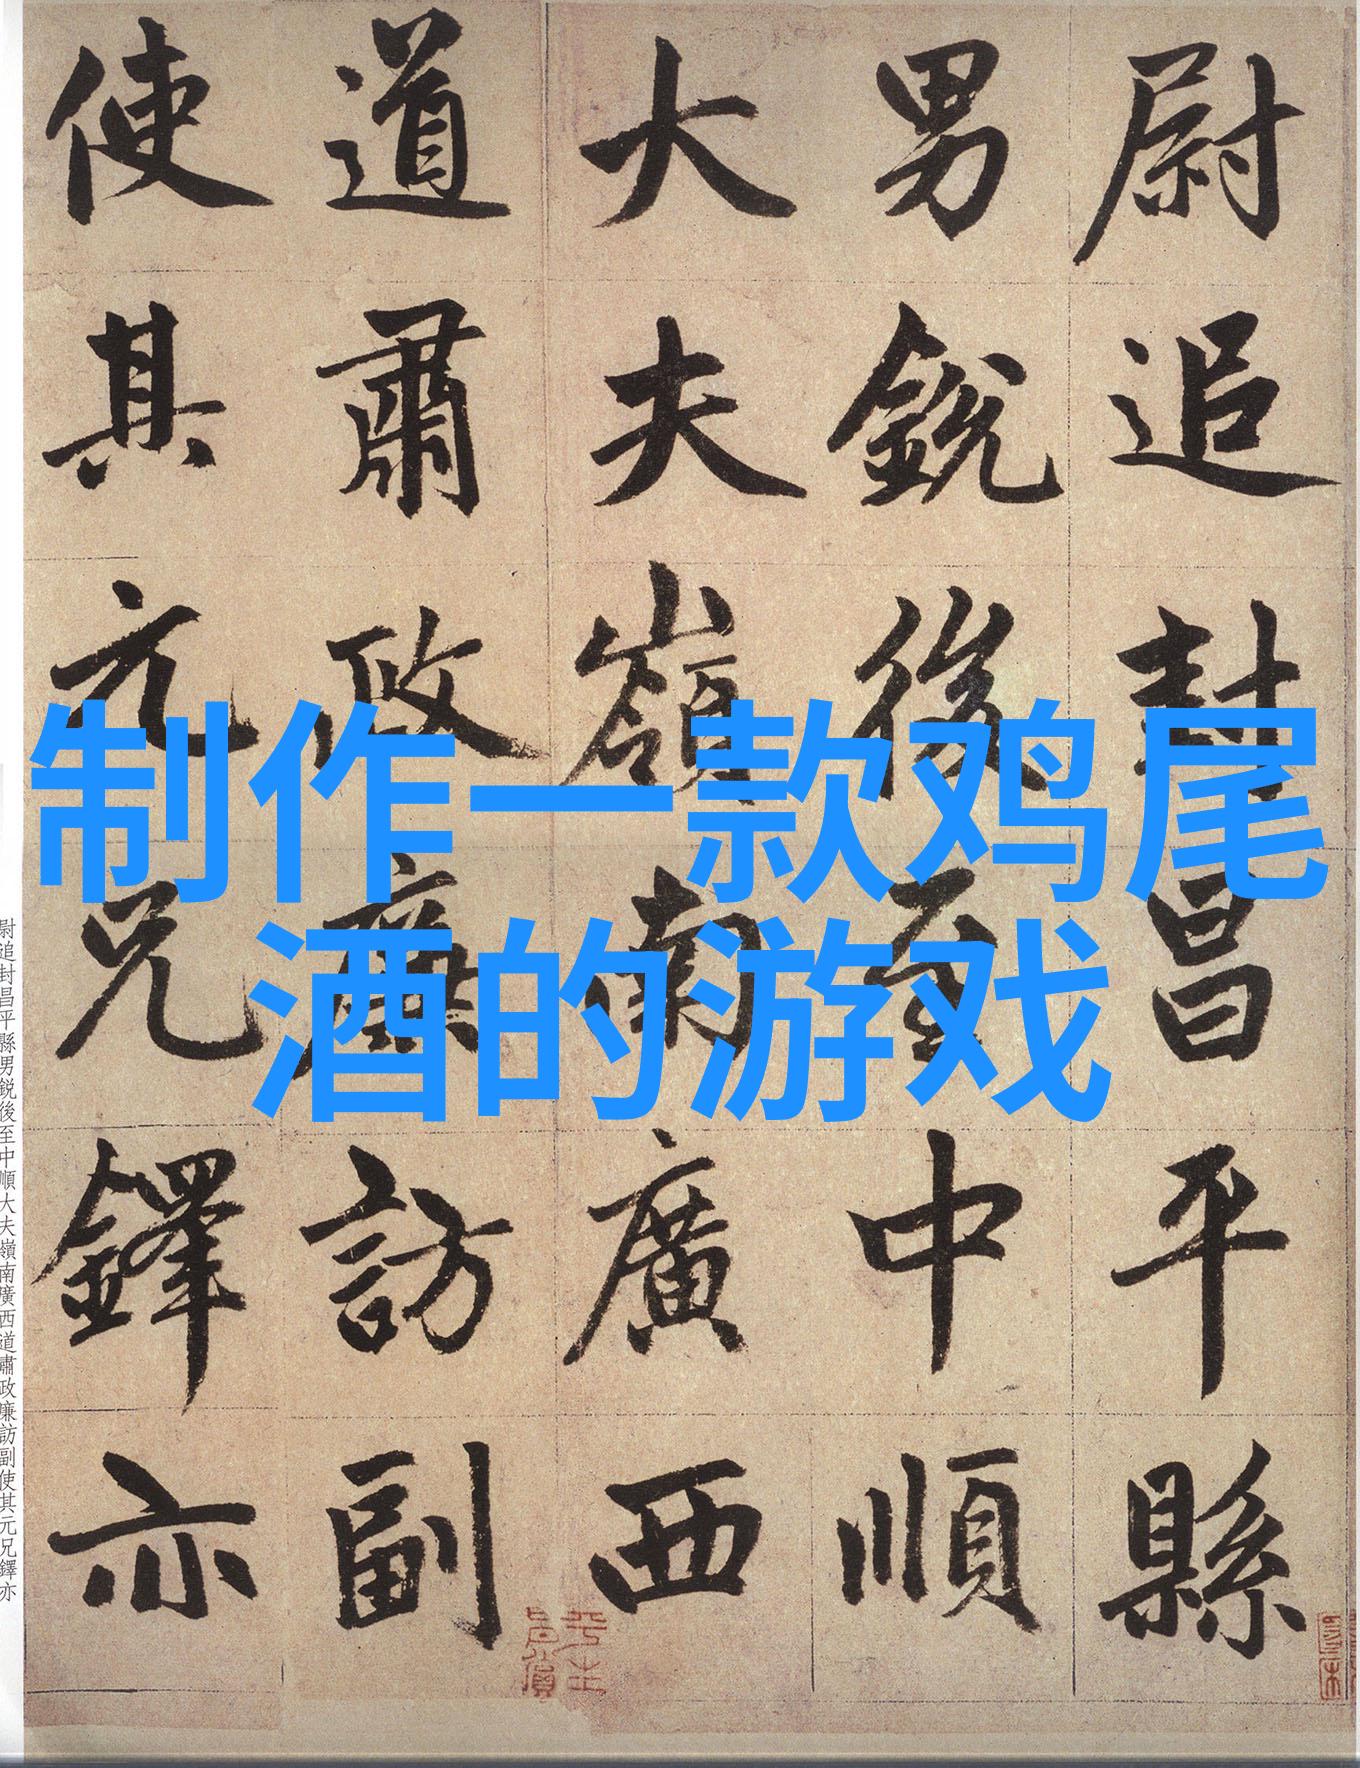 尉追封昌平縣
男銳後至中順
大夫嶺南廣西
道肅政廉訪副
使其元兄鐸亦
制作一款鸡尾
酒的游戏
尉追封昌平縣男銳後至中順大夫嶺南廣西道肅政廉訪副使其元兄鐸亦